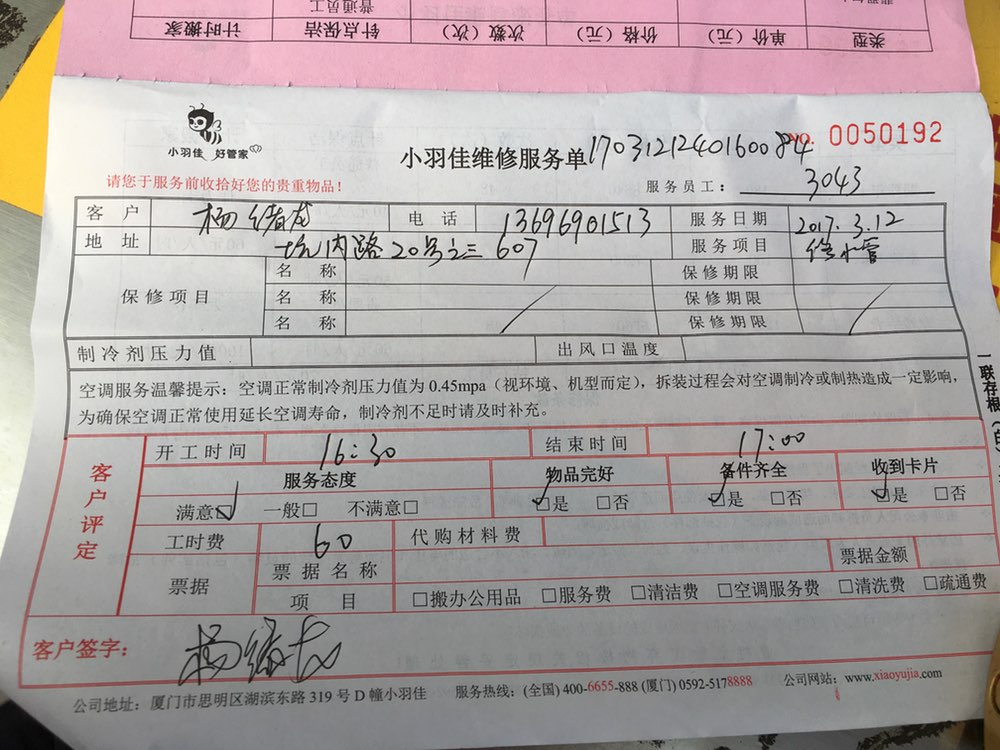 类型 单价（元） 价格（元） 次数（次） 钟点保洁 计时搬家
普通员工
小羽佳 好管家
小羽佳维修服务单 1703121240160084 NO. 0050192
请您于服务前收拾好您的贵重物品！
服务员工： 3043
客户 杨绪龙 电话 13696901513 服务日期 2017.3.12
地址 坑内路20号之三 607 服务项目 修水管
保修项目 名称 保修期限
名称 保修期限
名称 保修期限
制冷剂压力值 出风口温度
空调服务温馨提示：空调正常制冷剂压力值为 0.45mpa（视环境、机型而定），拆装过程会对空调制冷或制热造成一定影响，
为确保空调正常使用延长空调寿命，制冷剂不足时请及时补充。
一联存根（白
客户评定
开工时间 16:30 结束时间 17:00
服务态度 物品完好 备件齐全 收到卡片
满意☑ 一般□ 不满意□ ☑是 □否 ☑是 □否 ☑是 □否
工时费 60 代购材料费
票据 票据名称 票据金额
项目 □搬办公用品 □服务费 □清洁费 □空调服务费 □清洗费 □疏通费
客户签字： 杨绪龙
公司地址：厦门市思明区湖滨东路 319 号 D 幢小羽佳 服务热线：(全国) 400-6655-888 (厦门) 0592-5178888 公司网站：www.xiaoyujia.com